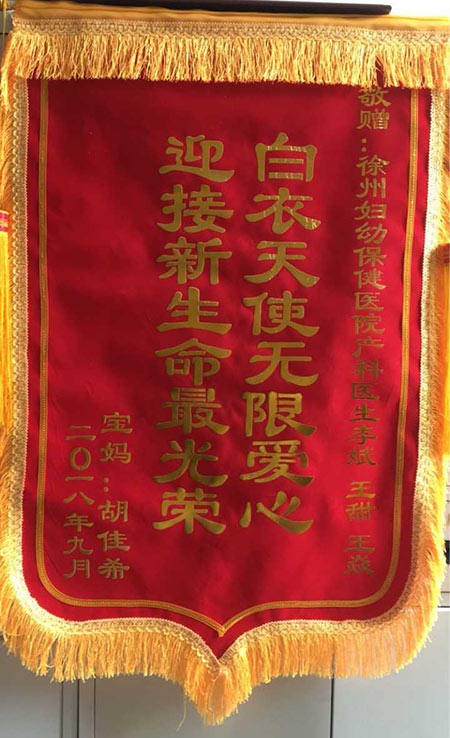 敬赠：徐州妇幼保健医院产科医生李斌 王甜 王焱
白衣天使无限爱心
迎接新生命最光荣
宝妈：胡佳希
二〇一八年九月